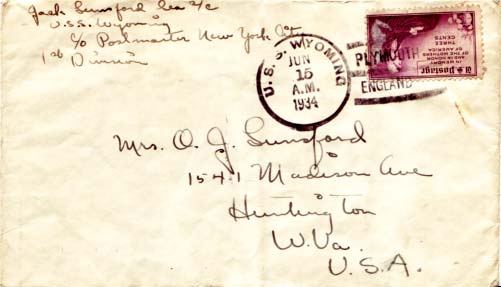 Jack Lunsford Sea 2/c
U.S.S. Wyoming
c/o Postmaster New York City
1st Division
U.S.S. WYOMING
JUN
15
A.M.
1934
PLYMOUTH
ENGLAND
U.S. Postage
IN MEMORY
AND IN HONOR
OF THE MOTHERS
OF AMERICA
THREE
CENTS
Mrs. O. J. Lunsford
1541 Madison Ave
Huntington
W. Va.
U.S.A.